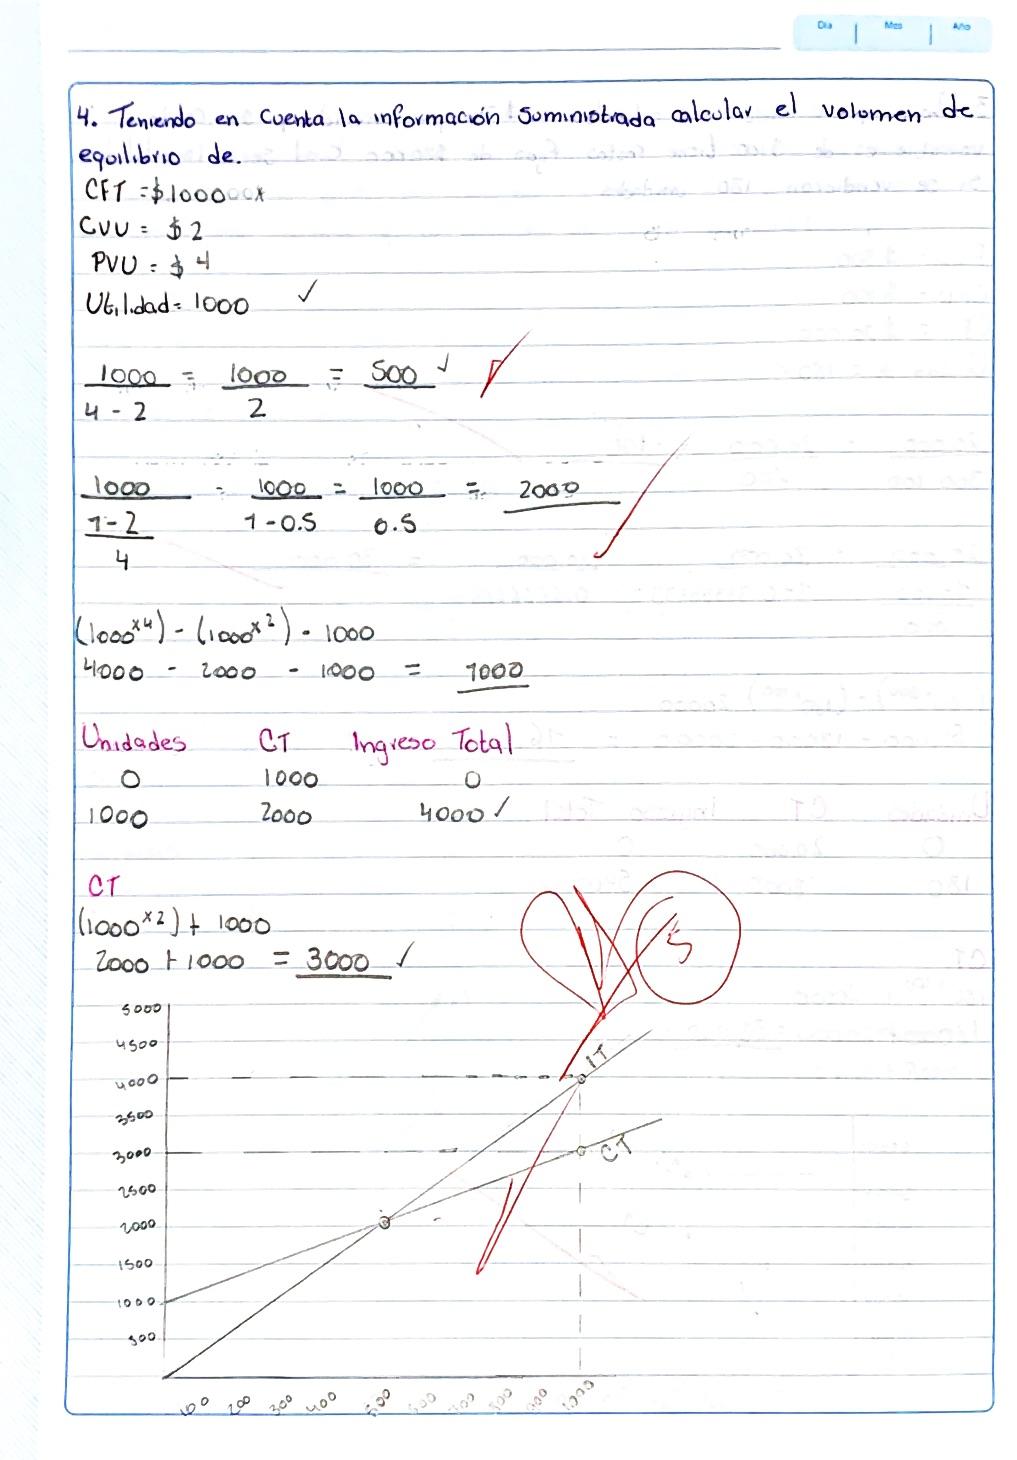 Dia | Mes | Año
4. Teniendo en cuenta la información suministrada calcular el volumen de
equilibrio de.
CFT = $1000
CVU = $2
PVU = $4
Utilidad = 1000 ✓
1000 = 1000 = 500 ✓
4 - 2 2
1000 - 1000 = 1000 = 2000
1-2 1-0.5 0.5
4
(1000 x4) - (1000 x2) - 1000
4000 - 2000 - 1000 = 1000
Unidades CT Ingreso Total
0 1000 0
1000 2000 4000 ✓
CT
(1000 x2) + 1000
2000 + 1000 = 3000 ✓
5
5000
4500
4000 IT
3500
3000 CT
2500
2000
1500
1000
500
100 200 300 400 500 600 700 800 900 1000